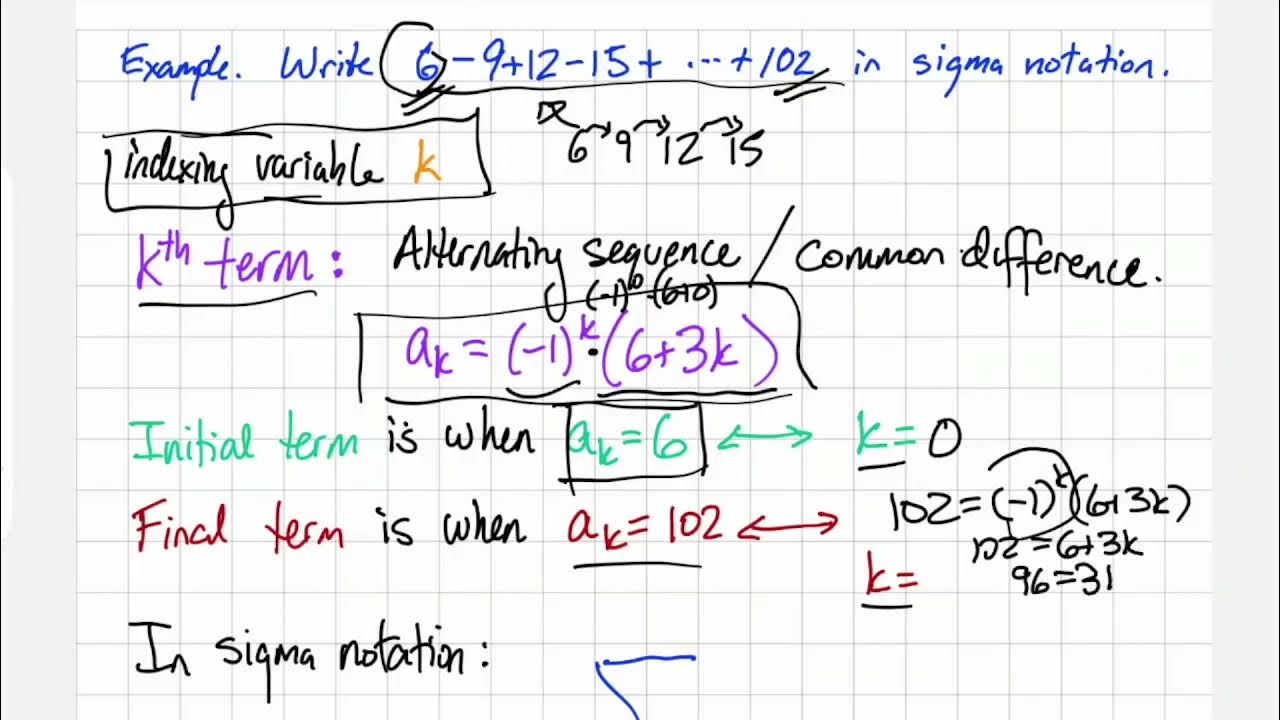 Example. Write 6-9+12-15+ ...+102 in sigma notation.
6 9 12 15
indexing variable k
kth term: Alternating sequence / Common difference.
(-1)^0 (6+0)
a_k = (-1)^k · (6+3k)
Initial term is when a_k = 6 ↔ k = 0
102 = (-1)^k (6+3k)
Final term is when a_k = 102 ↔ k =
102 = 6+3k
96 = 31
In sigma notation: